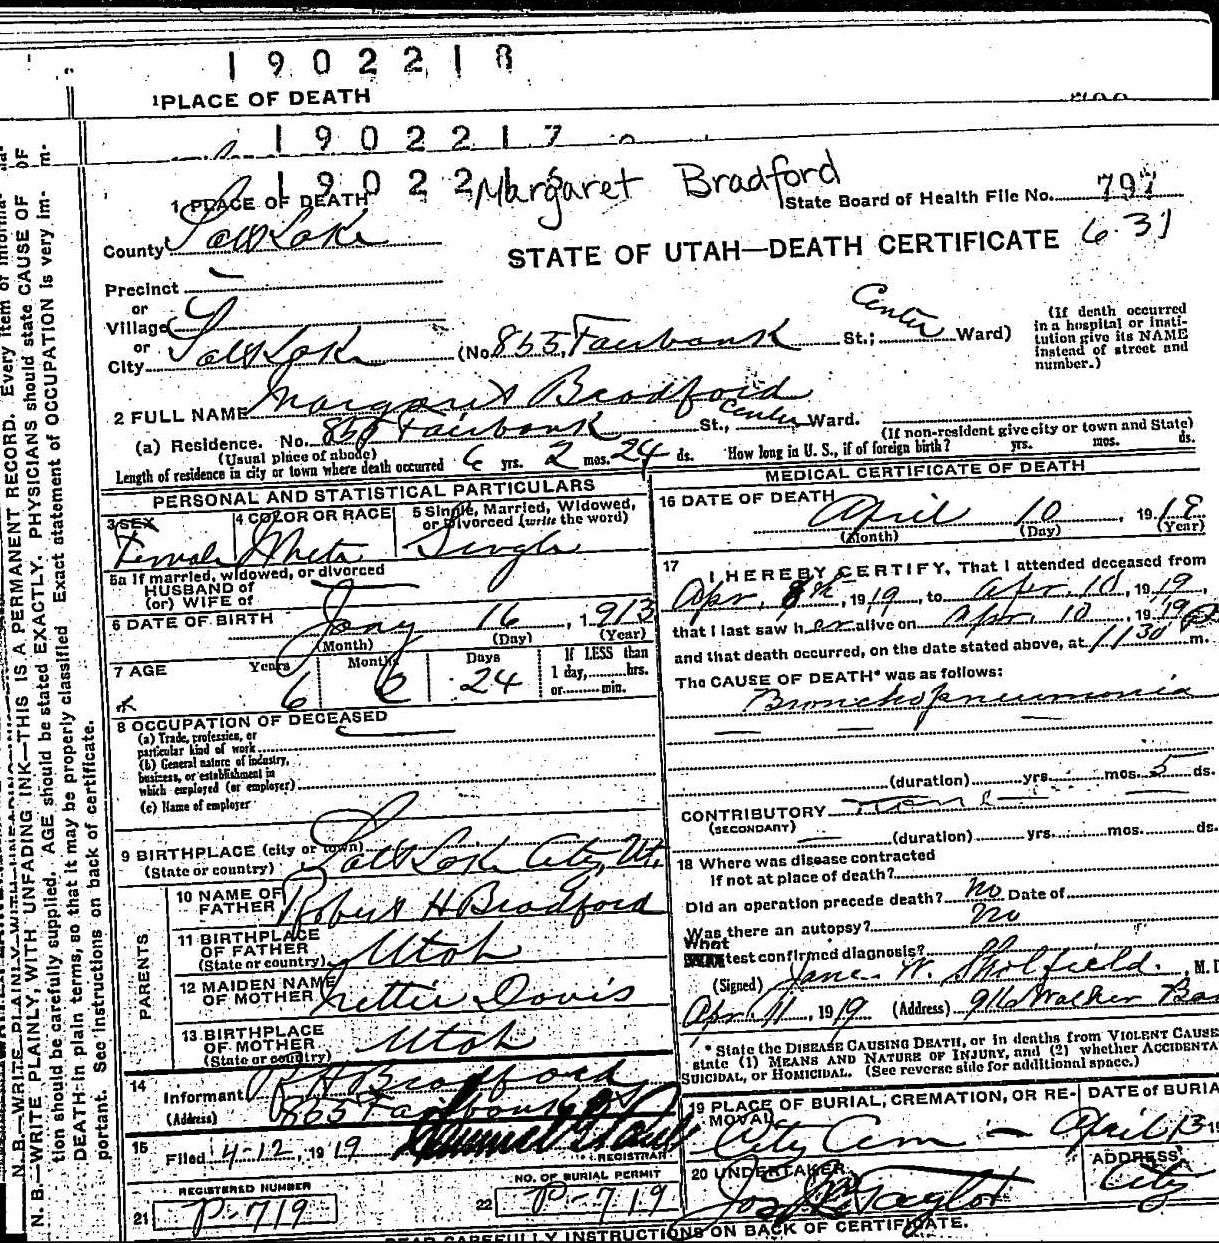 1902218
1 PLACE OF DEATH
1902217
190221
Margaret Bradford
1 PLACE OF DEATH
State Board of Health File No. 797
County Salt Lake
STATE OF UTAH—DEATH CERTIFICATE 6.31
Precinct
or
Village
or
City Salt Lake (No. 855 Fairbank St.; Center Ward)
(If death occurred
in a hospital or insti-
tution give its NAME
instead of street and
number.)
2 FULL NAME Margaret Bradford
(a) Residence. No. 855 Fairbank St., Center Ward.
(Usual place of abode)
(If non-resident give city or town and State)
Length of residence in city or town where death occurred 6 yrs. 2 mos. 24 ds. How long in U. S., if of foreign birth? yrs. mos. ds.
PERSONAL AND STATISTICAL PARTICULARS
3 SEX
Female
4 COLOR OR RACE
White
5 Single, Married, Widowed,
or Divorced (write the word)
Single
5a If married, widowed, or divorced
HUSBAND of
(or) WIFE of
6 DATE OF BIRTH Jany 16, 1913
(Month) (Day) (Year)
7 AGE Years Months Days If LESS than
1 day, hrs.
or min.
6 24
8 OCCUPATION OF DECEASED
(a) Trade, profession, or
particular kind of work
(b) General nature of industry,
business, or establishment in
which employed (or employer)
(c) Name of employer
9 BIRTHPLACE (city or town) Salt Lake City, Ut.
(State or country)
PARENTS
10 NAME OF
FATHER Robert H Bradford
11 BIRTHPLACE
OF FATHER
(State or country) Utah
12 MAIDEN NAME
OF MOTHER Nettie Davis
13 BIRTHPLACE
OF MOTHER
(State or country) Utah
14
Informant R H Bradford
(Address) 865 Fairbanks
15
Filed 4-12, 1919
REGISTRAR
REGISTERED NUMBER
21 P-719
NO. OF BURIAL PERMIT
22 P-719
MEDICAL CERTIFICATE OF DEATH
16 DATE OF DEATH
April 10, 19
(Month) (Day) (Year)
17
I HEREBY CERTIFY, That I attended deceased from
Apr. 8th, 1919, to Apr. 10, 1919,
that I last saw her alive on Apr. 10, 1919
and that death occurred, on the date stated above, at 1130 m.
The CAUSE OF DEATH* was as follows:
Bronchopneumonia
(duration) yrs. mos. 5 ds.
CONTRIBUTORY none
(SECONDARY)
(duration) yrs. mos. ds.
18 Where was disease contracted
If not at place of death?
Did an operation precede death? no Date of
Was there an autopsy? no
What test confirmed diagnosis?
(Signed) Jane W. Skolfield, M. D
Apr. 11, 1919 (Address) 916 Walker Ba
* State the DISEASE CAUSING DEATH, or in deaths from VIOLENT CAUSE
state (1) MEANS AND NATURE OF INJURY, and (2) whether ACCIDENTA
SUICIDAL, or HOMICIDAL. (See reverse side for additional space.)
19 PLACE OF BURIAL, CREMATION, OR RE-
MOVAL
City Cem
DATE OF BURIA
April 13
20 UNDERTAKER
Jos Taylor
ADDRESS
City
READ CAREFULLY INSTRUCTIONS ON BACK OF CERTIFICATE.
N. B.—WRITE PLAINLY, WITH UNFADING INK—THIS IS A PERMANENT RECORD. Every item of informa-
tion should be carefully supplied. AGE should be stated EXACTLY. PHYSICIANS should state CAUSE OF
DEATH in plain terms, so that it may be properly classified. Exact statement of OCCUPATION is very im-
portant. See instructions on back of certificate.